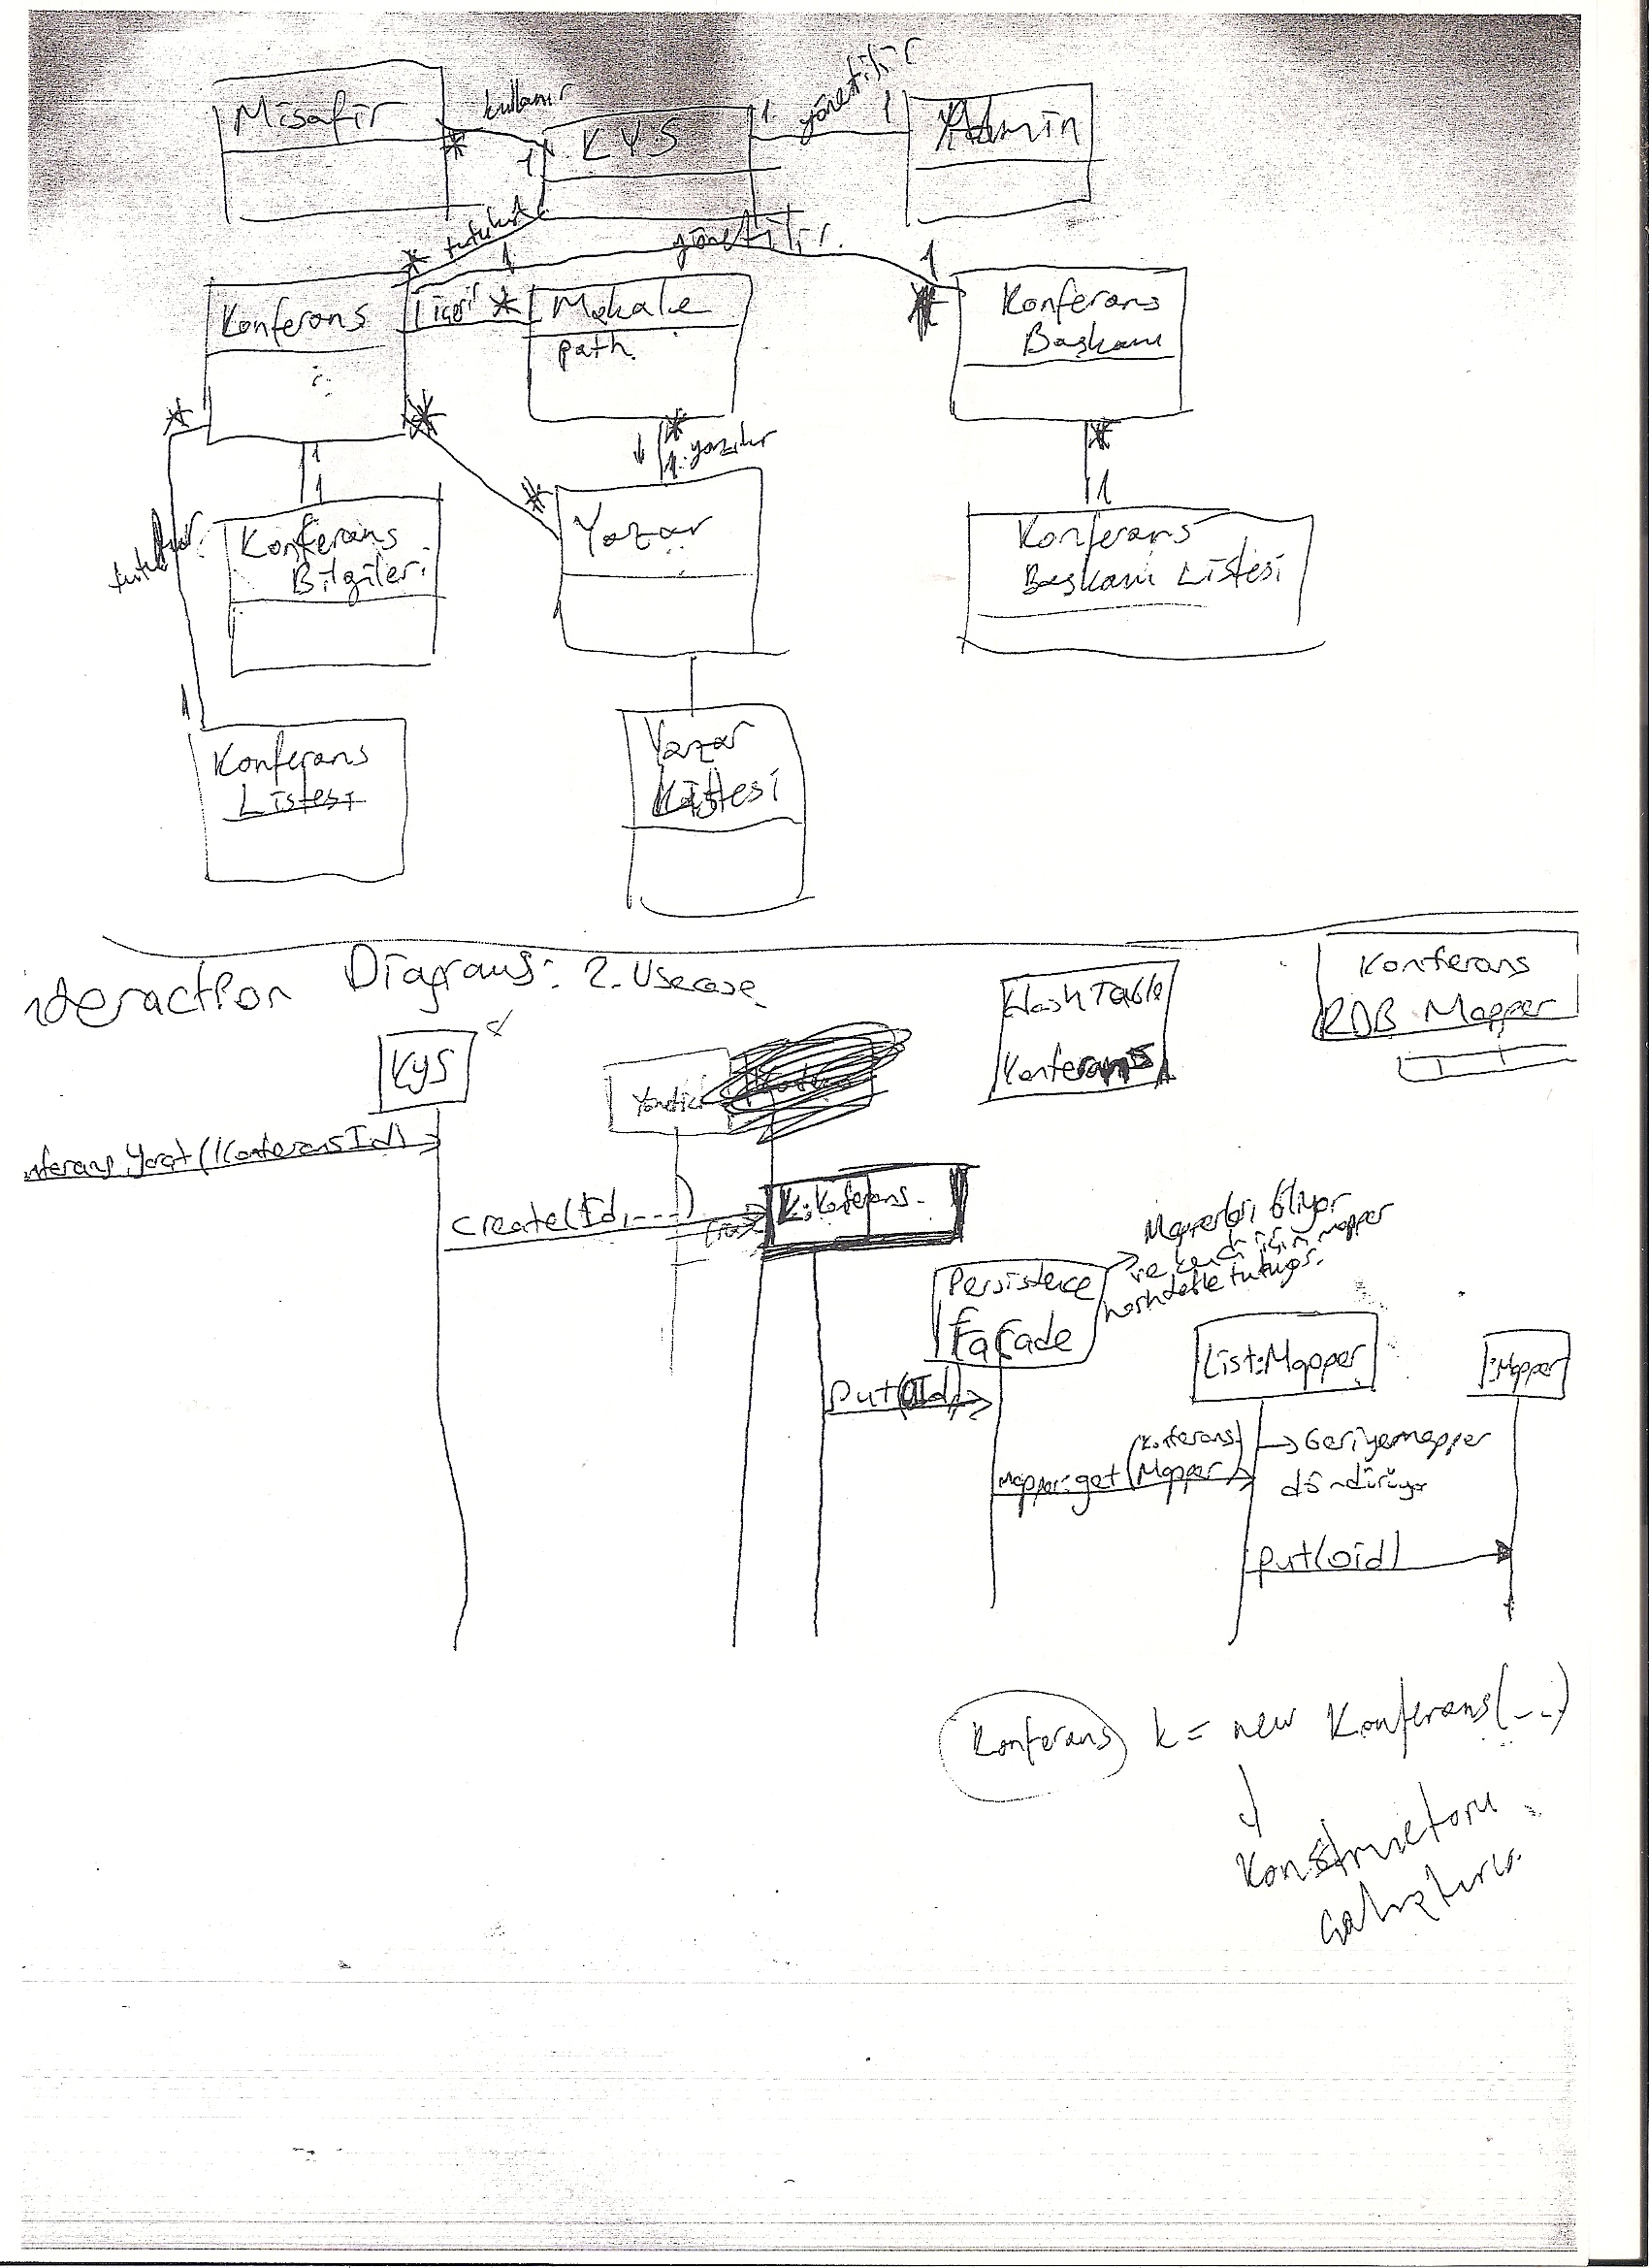 Misafir
kullanır
*
1
KYS
1
yönetilir
1
Admin
*
tutulur
1
yönetilir.
1
Konferans
İçerir
*
Makale
path
Konferans
Başkanı
*
*
*
1. yazılır
*
1
1
1
*
Konferans
Bilgileri
Yazar
Konferans
Başkanı Listesi
1
Konferans
Listesi
Yazar
Listesi
nteraction Diagrams: 2. Usecase
HashTable
Konferans
Konferans
RDB Mapper
KYS
Yönetici
nferans Yarat(KonferansId)
create(Id,---)
k:Konferans
Persistence
Façade
Mapperları biliyor
ve kendi için mapper
hashtable tutuyor.
List:Mapper
:Mapper
put(OId)
Mapper:get(Konferans
Mapper)
Geriye mapper
döndürüyor
put(oid)
Konferans k = new Konferans(--)
Konstructoru
çalıştırır.